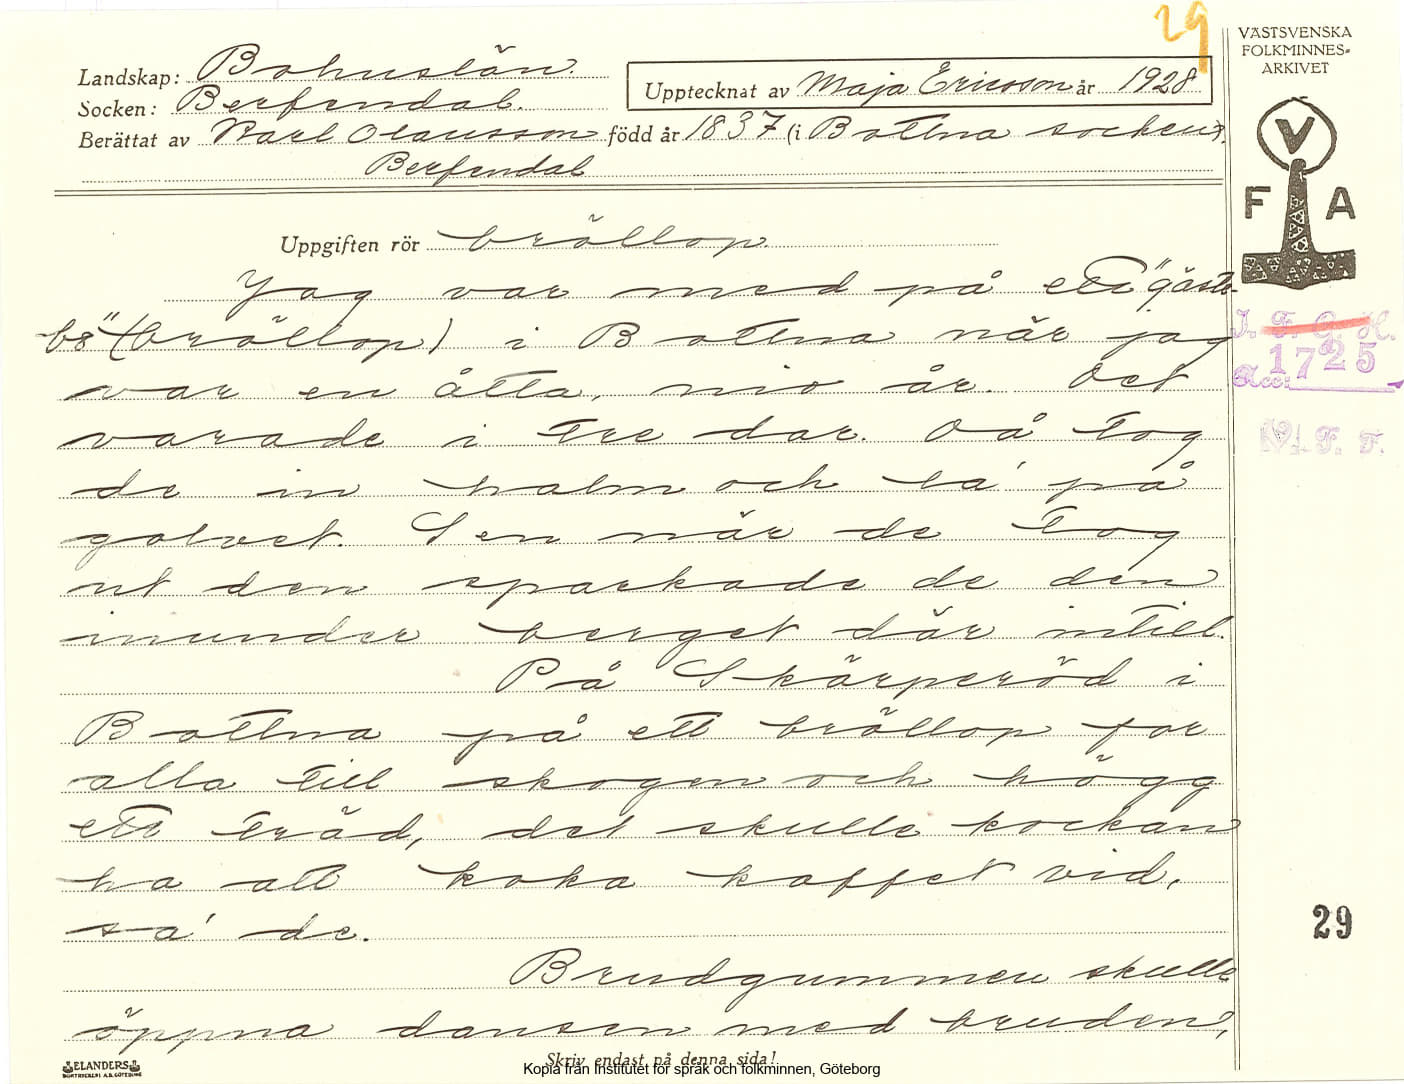 29
VÄSTSVENSKA
FOLKMINNES-
ARKIVET
Landskap: Bohuslän.
Socken: Berfendal.
Upptecknat av Maja Ericsson år 1928
Berättat av Karl Olausson född år 1837 (i Bottna socken),
Berfendal
V
F A
Uppgiften rör bröllop.
Jag var med på ett "gäste-
bs" (bröllop) i Bottna när jag
var en åtta, nio år. Det
varade i tre dar. Då tog
de in halm och la' på
golvet. Sen när de tog
ut den sparkade de den
inunder berget där intill.
På Skärperöd i
Bottna på ett bröllop for
alla till skogen och högg
ett träd, det skulle kockan
ha att koka kaffet vid,
sa' de.
Brudgummen skulle
öppna dansen med bruden,
I. F. G. H.
Acc: 1725
V. F. F.
29
ELANDERS
BOKTRYCKERI A.B. GÖTEBORG
Skriv endast på denna sida!
Kopia från Institutet för språk och folkminnen, Göteborg